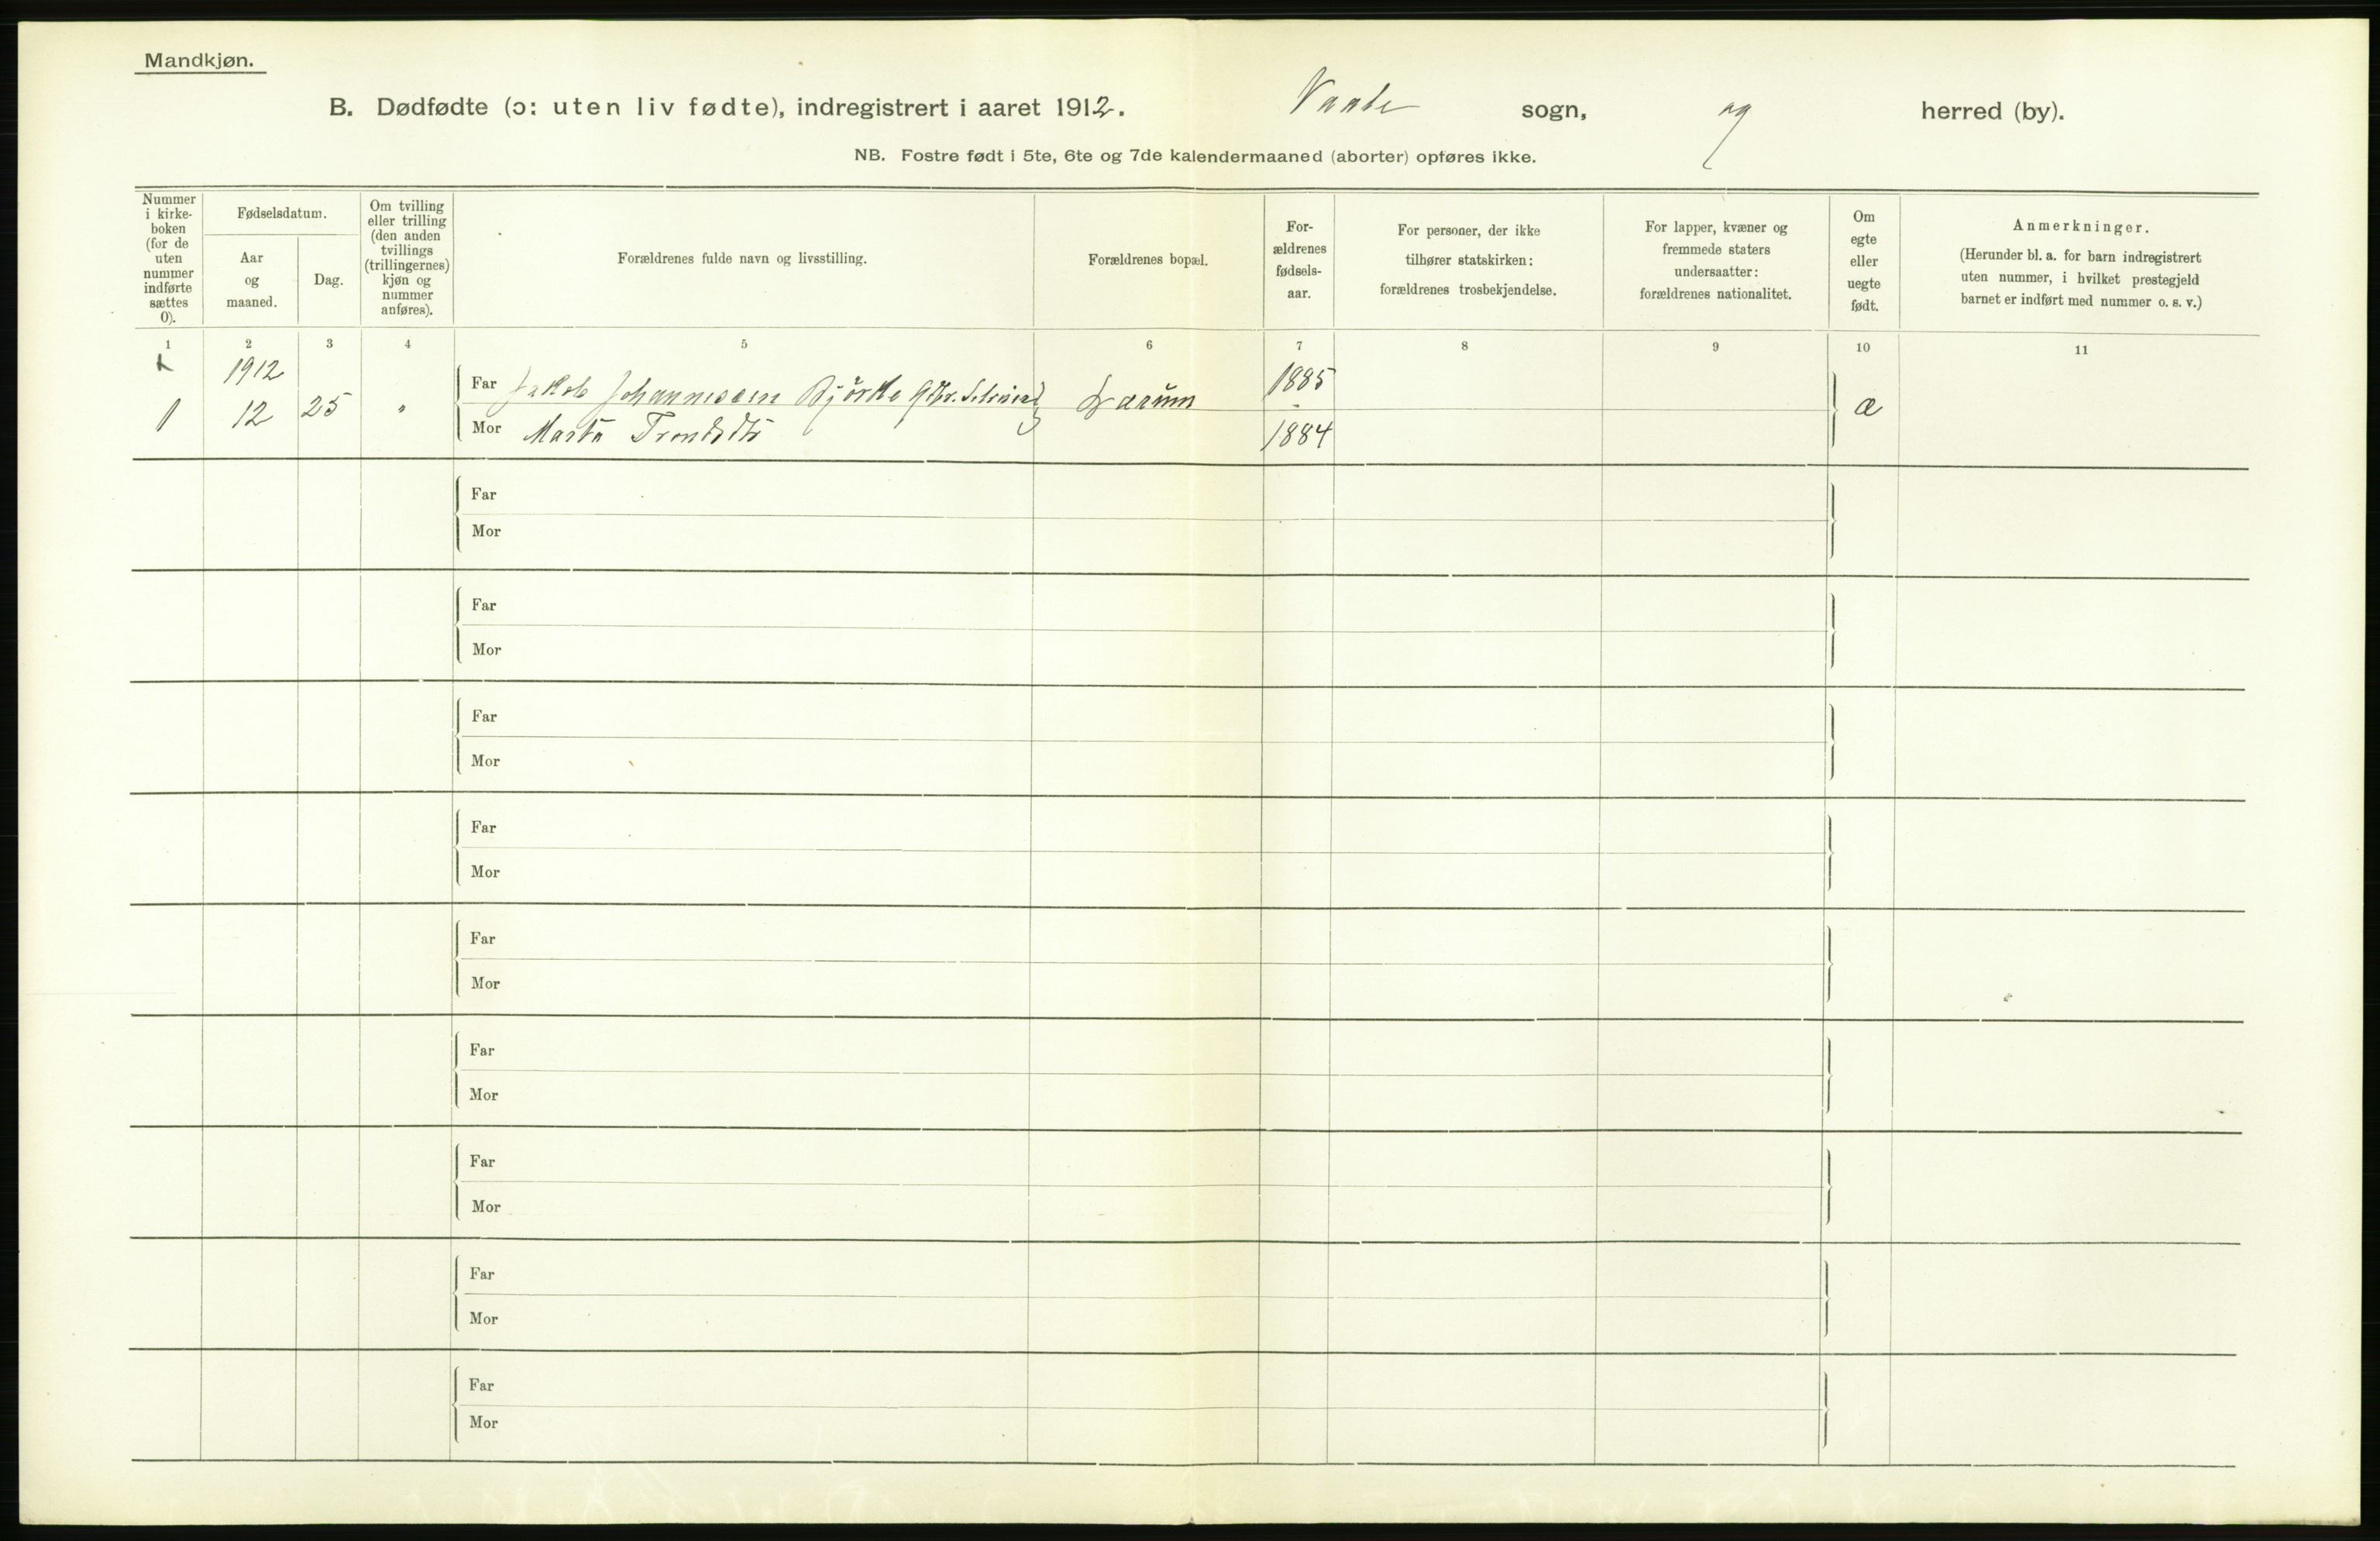 Mandkjøn.
B. Dødfødte (ɔ: uten liv fødte), indregistrert i aaret 1912. sogn, og herred (by).
NB. Fostre født i 5te, 6te og 7de kalendermaaned (aborter) opføres ikke.
Nummer
i kirke-
boken
(for de
uten
nummer
indførte
sættes
0).
Fødselsdatum.
Aar
og
maaned.
Dag.
Om tvilling
eller trilling
(den anden
tvillings
(trillingernes)
kjøn og
nummer
anføres).
Forældrenes fulde navn og livsstilling.
Forældrenes bopæl.
For-
ældrenes
fødsels-
aar.
For personer, der ikke
tilhører statskirken:
forældrenes trosbekjendelse.
For lapper, kvæner og
fremmede staters
undersaatter:
forældrenes nationalitet.
Om
egte
eller
uegte
født.
Anmerkninger.
(Herunder bl. a. for barn indregistrert
uten nummer, i hvilket prestegjeld
barnet er indført med nummer o. s. v.)
1 2 3 4 5 6 7 8 9 10 11
1912
1 12 25 "
Far Jakob Johannessen Bjørke 1885
Mor Marta 1884
æ
Far
Mor
Far
Mor
Far
Mor
Far
Mor
Far
Mor
Far
Mor
Far
Mor
Far
Mor
Far
Mor